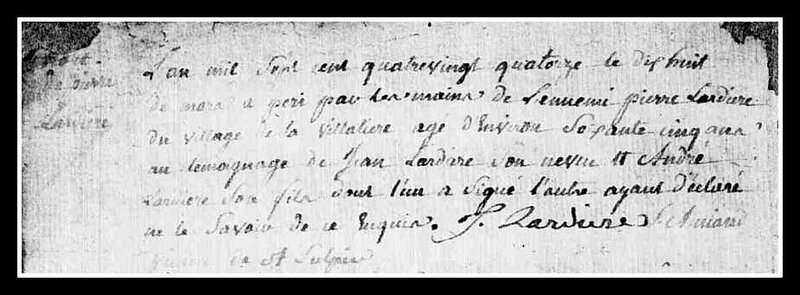 mort
de pierre
Lardiere
L'an mil sept cent quatrevingt quatorze le dix huit
de mars a peri par les mains de l'ennemi pierre Lardiere
du village de la Villatiere agé d'Environ Soixante cinq ans
au temoignage de Jean Lardiere son neveu et André
Lardiere son fils dont l'un a signé l'autre ayant déclaré
ne le Savoir de ce Enquis. J. Lardiere
de St Sulpice